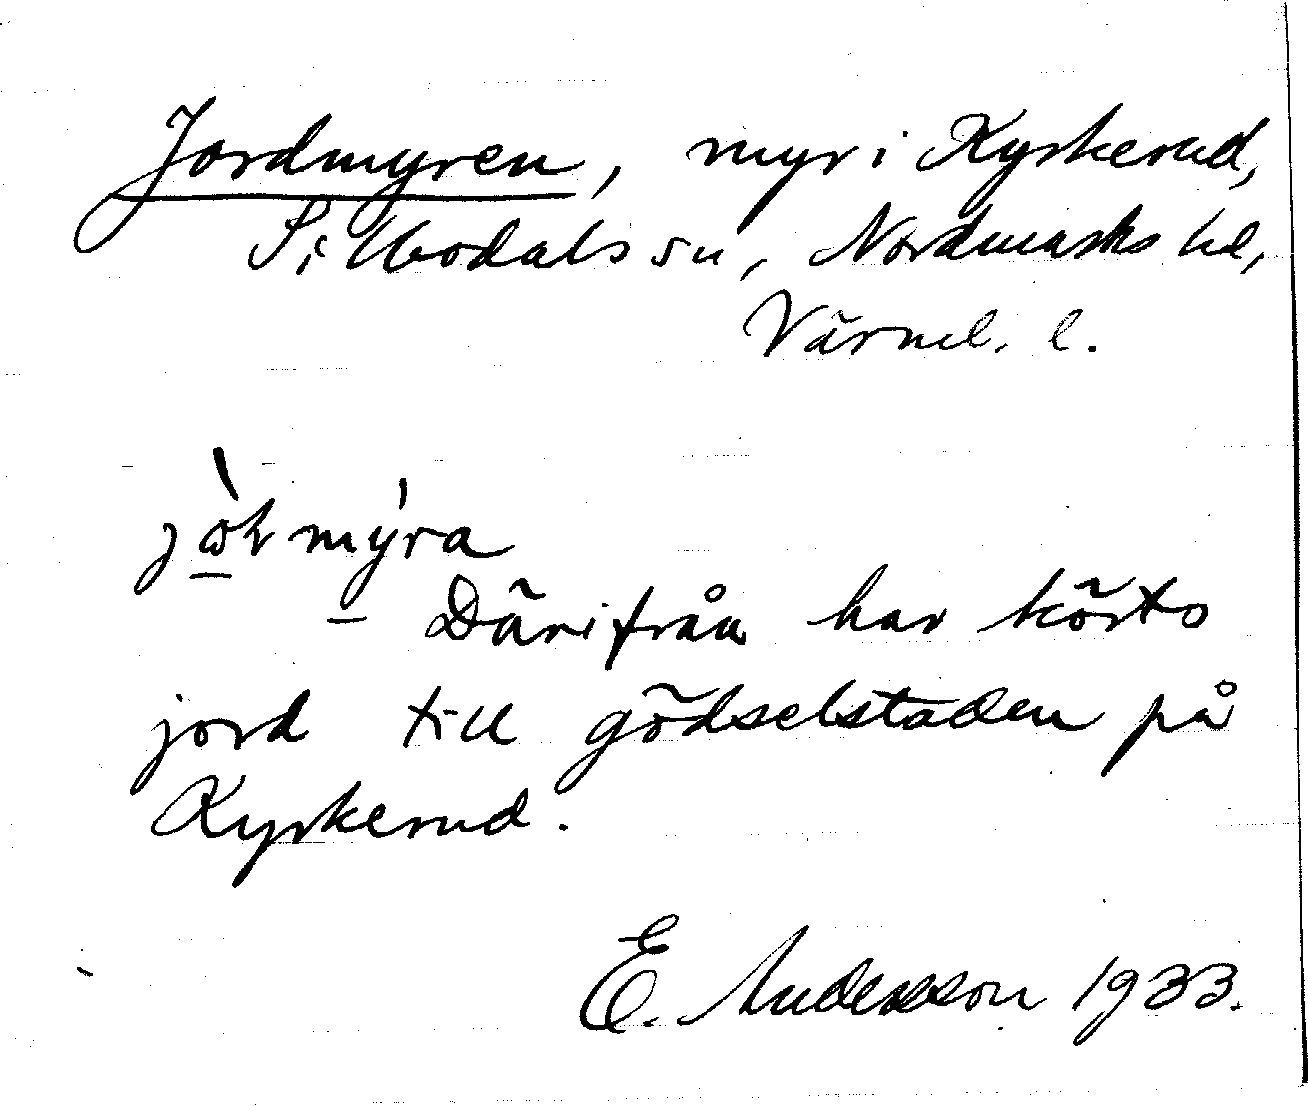 Jordmyren, myr i Kyrkerud,
Sillbodals sn, Nordmarks hd,
Värml. l.
myra
Därifrån har körts
jord till gödselstaden på
Kyrkerud.
E. Andersson 1933.